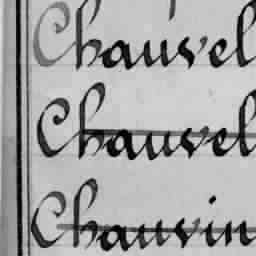 Chauvel
Chauvel
Chauvin